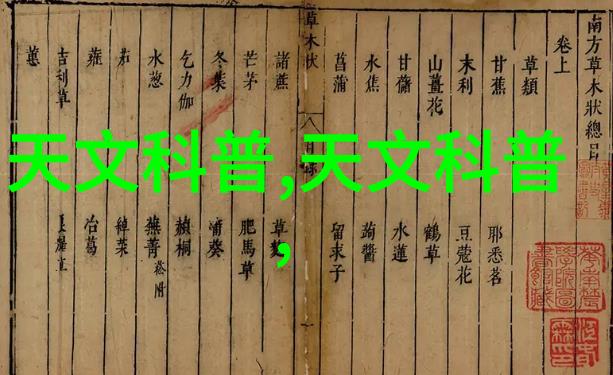 南方草木狀總目
卷上
草類
甘蕉
耶悉茗
末利
豆蔻花
山薑花
鶴草
甘藷
水蓮
水蕉
蒟醬
菖蒲
留求子
草木狀
目錄
諸蔗
草麴
芒茅
肥馬草
冬葉
蒲葵
乞力伽
赬桐
水葱
蕪菁 菘附
茄
綽菜
蕹
冶葛
吉利草
蕙
天文科普,天文科普
,